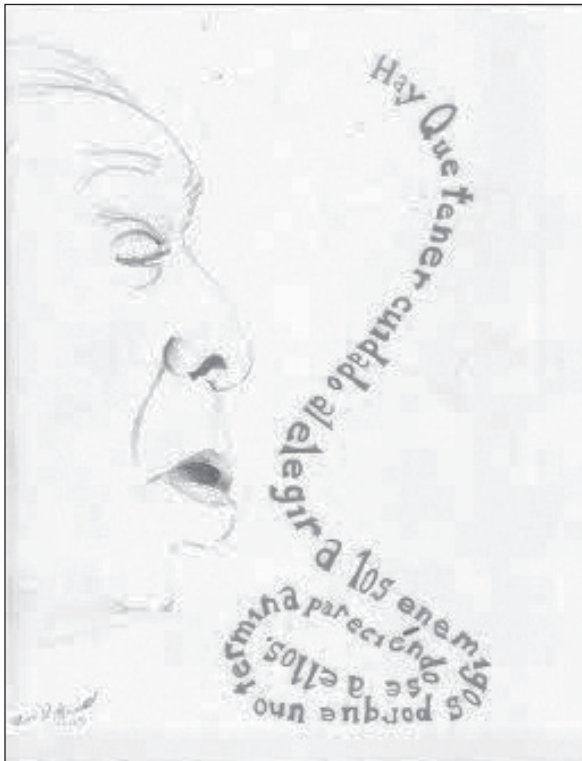 Hay Que tener cuidado al elegir a los enemigos porque uno termina pareciéndose a ellos.